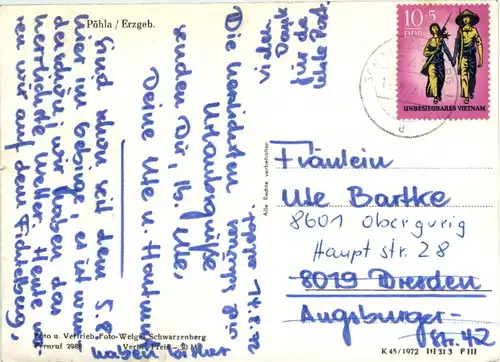 Pöhla / Erzgeb.
Die herzlichsten
Urlaubsgrüße
senden Dir, lb. Ute,
Deine Ute u. Hartmut
Sind schon seit dem 5.8.
hier im Gebirge, es ist wun-
derschön, wir haben das
herrlichste Wetter. Heute wa-
ren wir auf dem Fichtelberg,
haben bisher
Vielen
Dank
für die
liebe Post.
Foto u. Vertrieb: Foto-Weigel Schwarzenberg
Fernruf 298
Alle Rechte vorbehalten
10+5
DDR
UNBESIEGBARES VIETNAM
Fräulein
Ute Bartke
8601 Obergurig
Hauptstr. 28
8019 Dresden
Augsburger-
str. 42
K 45/1972 III 31 3 F III